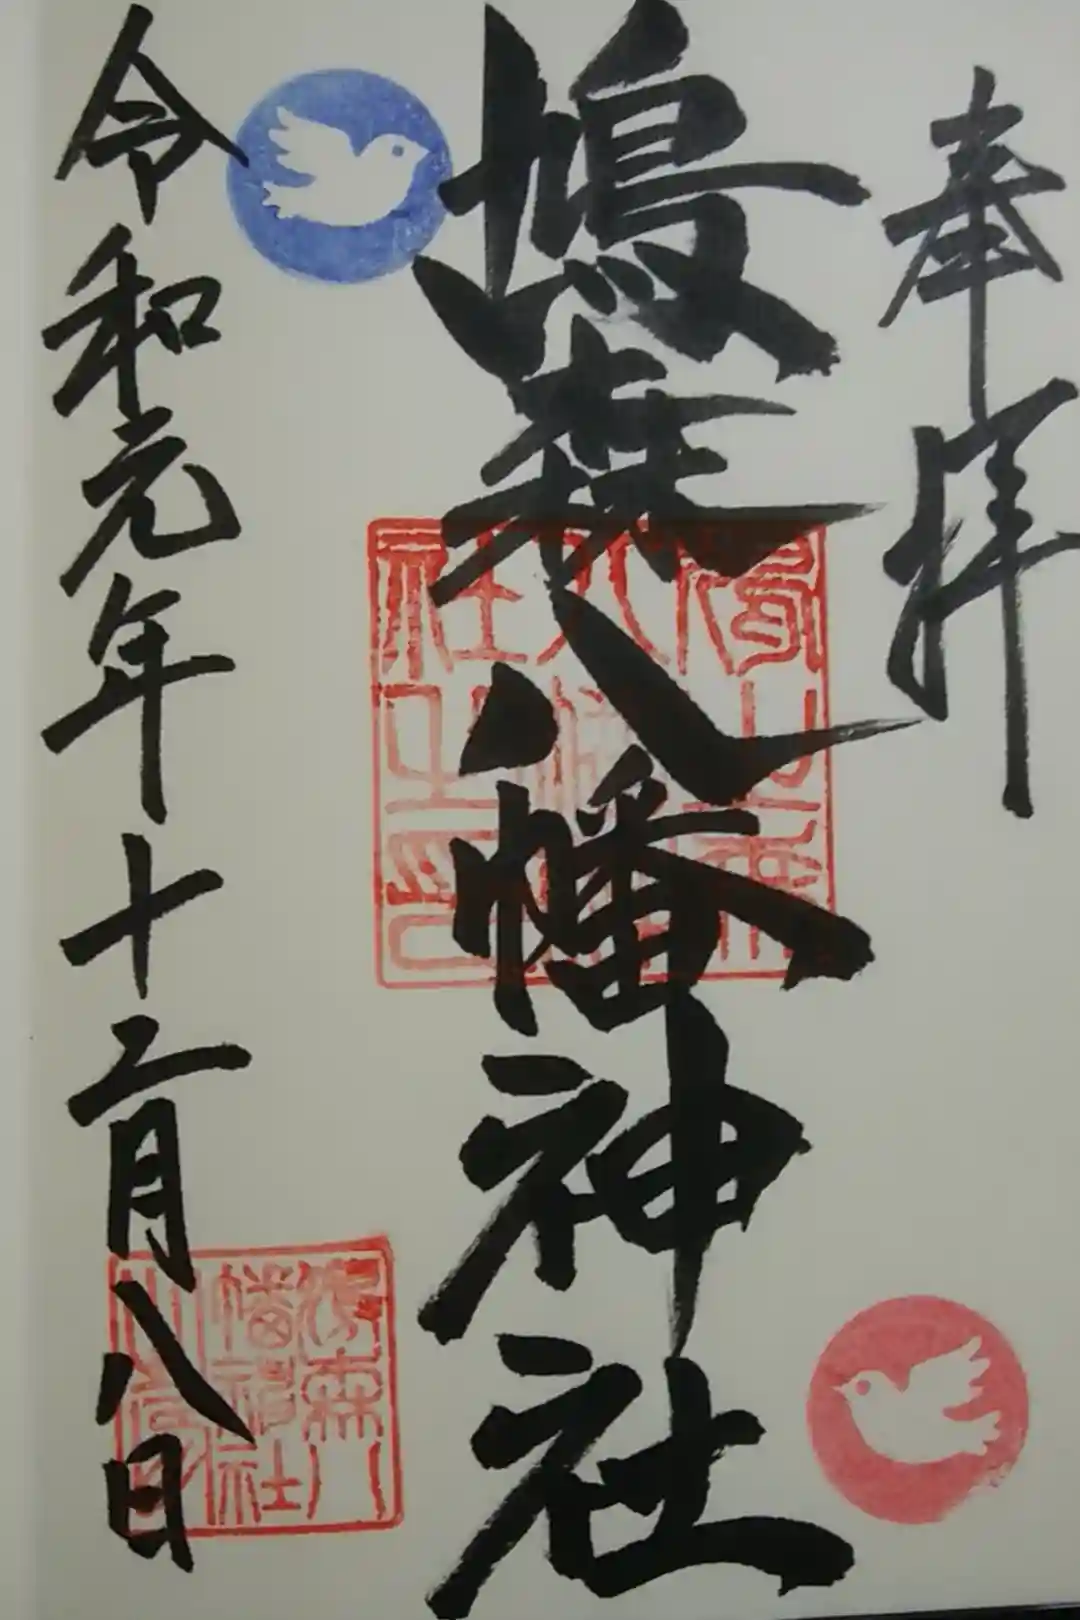 奉拝
鳩森八幡神社
令和元年十二月八日